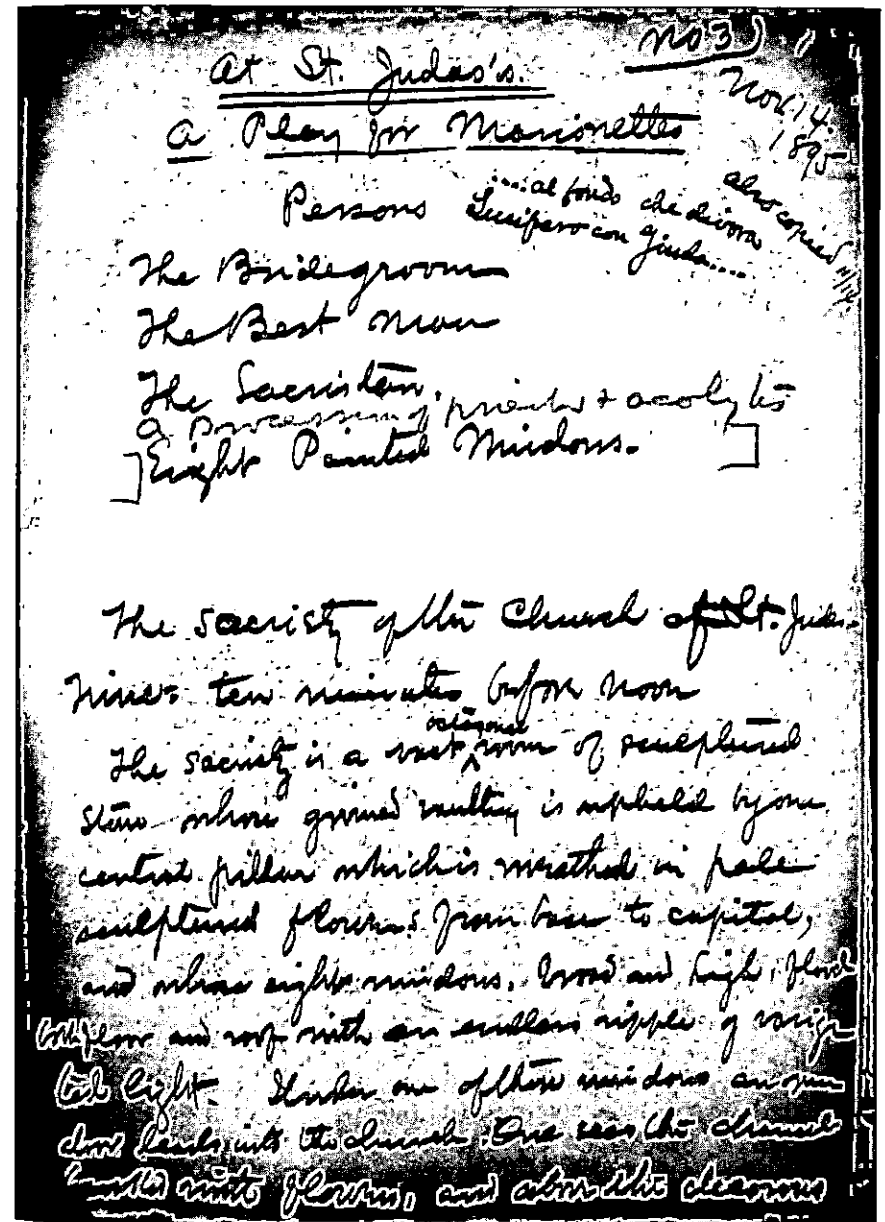 No 3)
At St. Judas's.
Nov. 14.
1895
A Play for Marionettes
also copied
Persons
....al fondo che divora
Lucifero con Giuda....
The Bridegroom
The Best Man
The Sacristan.
A procession of priests & acolytes
Eight Painted Windows.
The Sacristy of the Church of St. Judas.
Time: ten minutes before noon
octagonal
The sacristy is a vast room of sculptured
stone whose groined vaulting is upheld by one
central pillar which is wreathed in pale
sculptured flowers from base to capital,
and whose eight windows, broad and high, flood
both floor and roof with an endless ripple of varie-
ted light. Under one of these windows an open
door leads into the church. One sees the church
with flowers, and also the